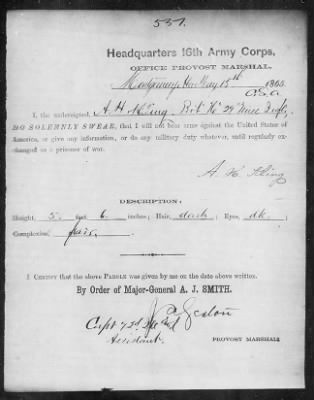 551.
Headquarters 16th Army Corps,
OFFICE PROVOST MARSHAL,
Montgomery, May 15th 1865
C.S.A.
I, the undersigned A. H. Pvt. Co 29
DO SOLEMNLY SWEAR, that I will not bear arms against the United States of
America, or give any information, or do any military duty whatever, until regularly ex-
changed as a prisoner of war.
A. H. King
DESCRIPTION:
Height, 5 feet 6 inches; Hair, dark; Eyes, dk.;
Complexion, fair.
I CERTIFY that the above PAROLE was given by me on the date above written.
By Order of Major-General A. J. SMITH.
Capt 72d
Assistant PROVOST MARSHAL